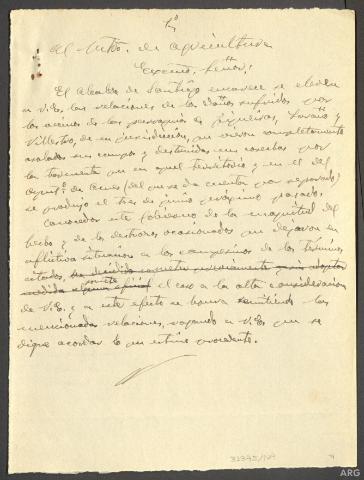 1º
Al Mtro. de Agricultura
Excmo. Señor:
El Alcalde de Santiago encarece se eleven
a V.E. las relaciones de los daños sufridos por
los vecinos de las parroquias de Figueiras,
Villestro, de su jurisdicción, que vieron completamente
asolados sus campos y destruidas sus cosechas por
la tormenta que en aquel territorio y en el del
Ayuntº de Ames (del que se da cuenta por separado)
se produjo el tres de junio próximo pasado.
Conocedor este Gobierno de la magnitud del
hecho y de los destrozos ocasionados que dejaron en
aflictiva situación a los campesinos de los términos
citados,
somete el caso a la alta consideración
de V.E. y a este efecto se honra remitiendo las
mencionadas relaciones, rogando a V.E. que se
digne acordar lo que estime procedente.
ARG